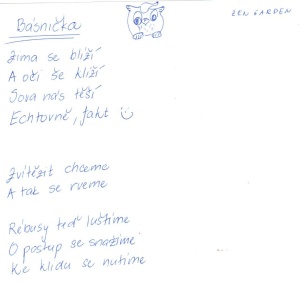 Básnička
ZEN GARDEN
Zima se blíží
A oči še klíží
Sova nás těší
Echtovně, fakt
Zvítězit chceme
A tak se rveme
Rébusy teď luštíme
O postup se snažíme
Ke klidu se nutíme